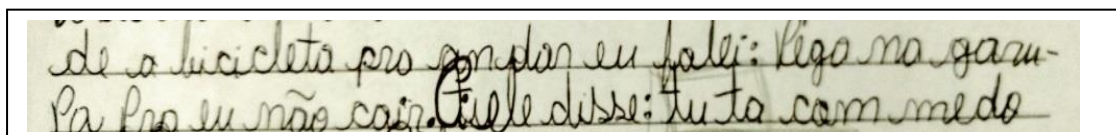 de a bicicleta pro andar eu falei: Pego na garu-
Pa Pro eu não cair. ele disse: tu ta com medo